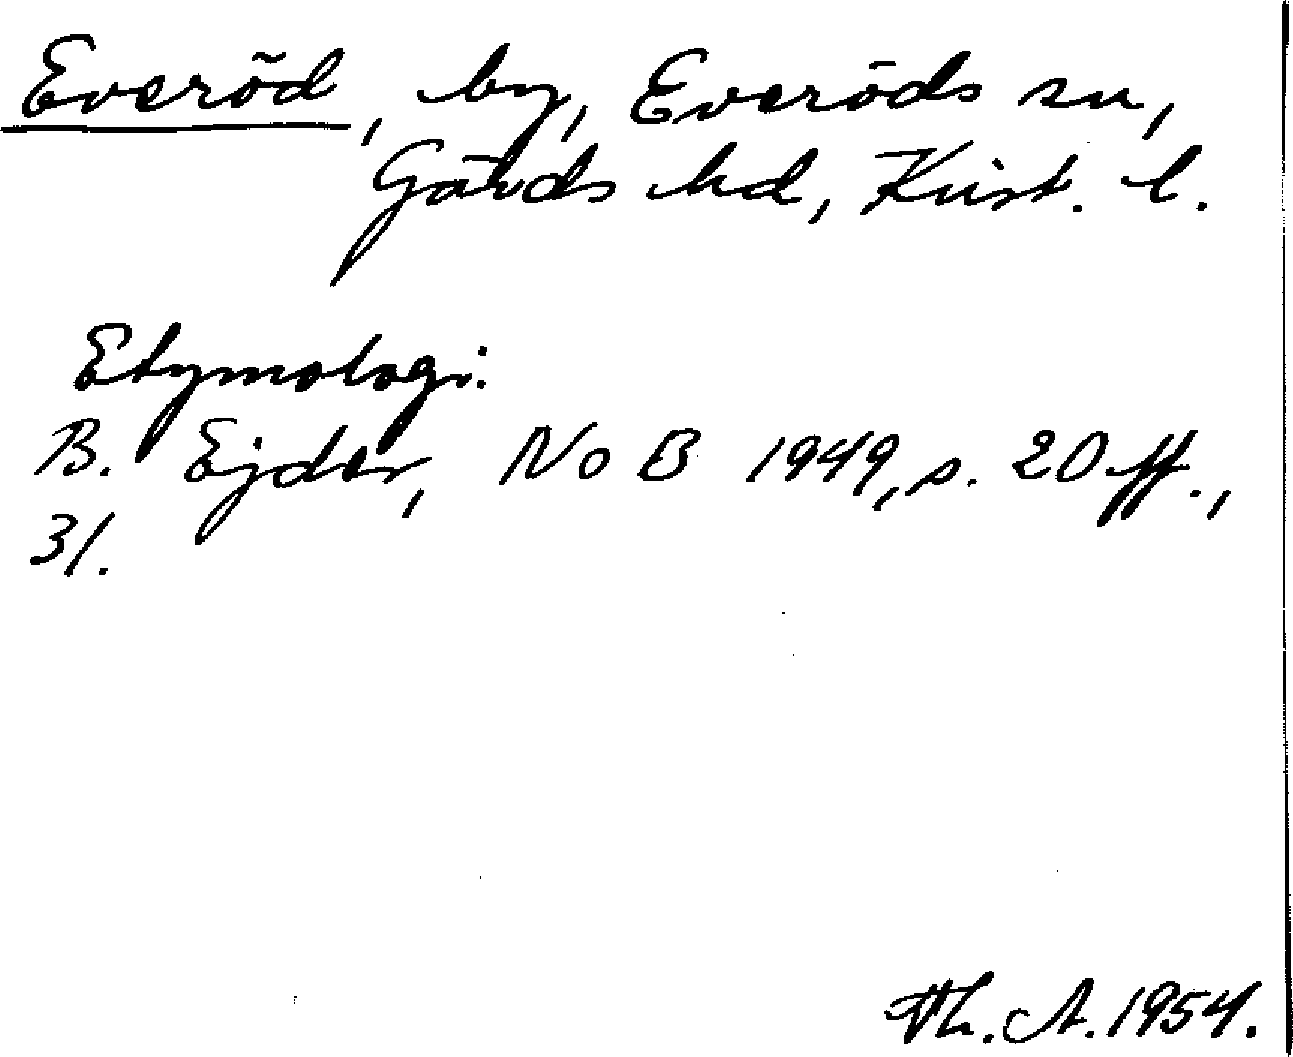 Everöd, by, Everöds sn,
Gärds hd, Krist. l.
Etymologi:
B. Ejder, NoB 1949, s. 20 ff.,
31.
Th. A. 1954.